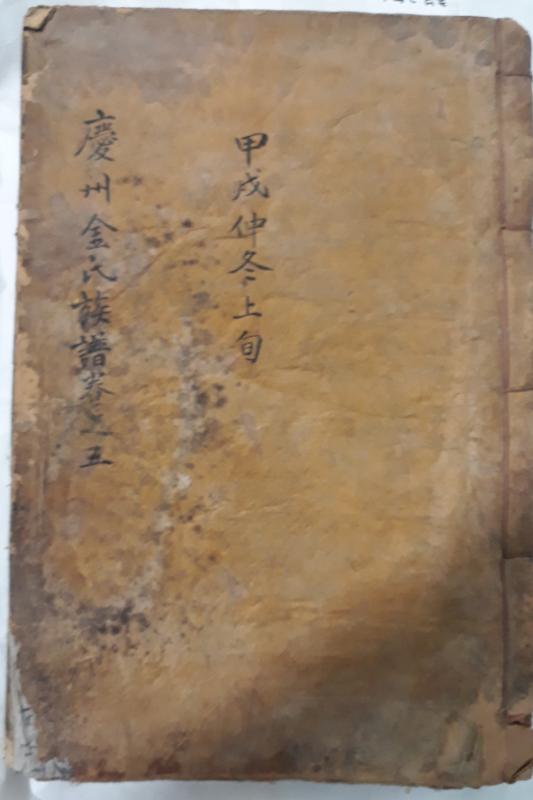 甲戌仲冬上旬
慶州金氏族譜卷之五